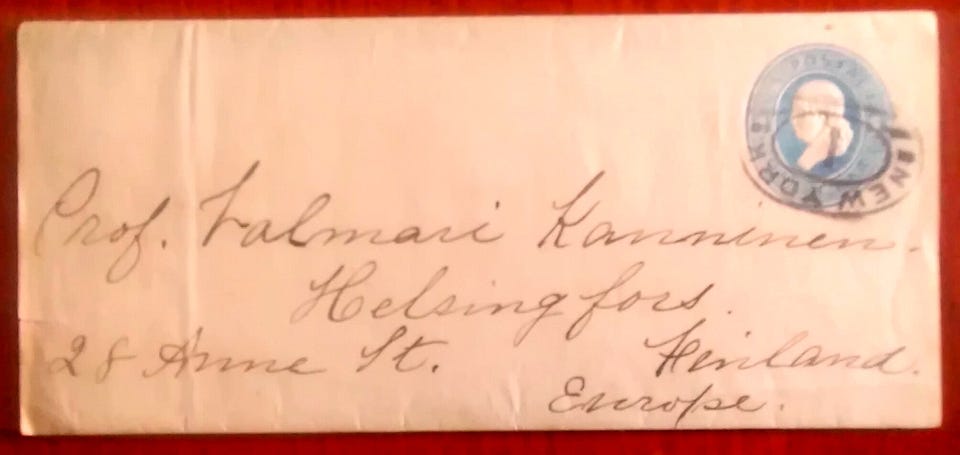 POSTA
NEW YORK
Prof. Valmari Kanninen.
Helsingfors.
28 Anne St. Finland.
Europe.